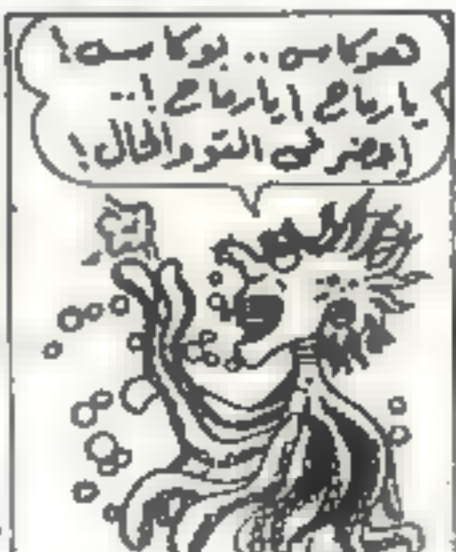 هوكاس .. بوكاس !
يارماح ! يارماح !..
إحضر في التو والحال !